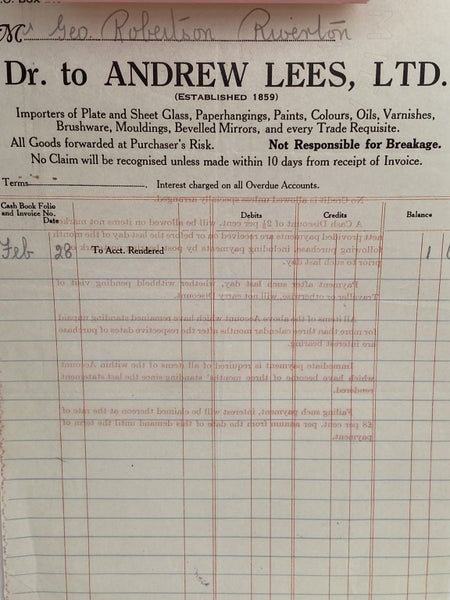 Mr Geo. Robertson Riverton
Dr. to ANDREW LEES, LTD.
(ESTABLISHED 1859)
Importers of Plate and Sheet Glass, Paperhangings, Paints, Colours, Oils, Varnishes,
Brushware, Mouldings, Bevelled Mirrors, and every Trade Requisite.
All Goods forwarded at Purchaser's Risk. Not Responsible for Breakage.
No Claim will be recognised unless made within 10 days from receipt of Invoice.
Terms Interest charged on all Overdue Accounts.
No Credit is allowed unless specially arranged.
Cash Book Folio
and Invoice No.
Date
Debits Credits Balance
A Cash Discount of 2½ per cent. will be allowed on items not marked
nett provided payments are received on or before the last day of the month
following purchase, including payments by post
prior to such last day.
Feb 28 To Acct. Rendered 1
Payment after such last day, whether withheld pending visit of
Traveller or otherwise, will not carry Discount.
All items of the above Account which have remained standing unpaid
for more than three calendar months after the respective dates of purchase
are interest bearing.
Immediate payment is required of all items of the within Account
which have become of three months' standing since the last statement
rendered.
Failing such payment, interest will be claimed thereon at the rate of
£8 per cent. per annum from the date of this demand until the term of
payment.